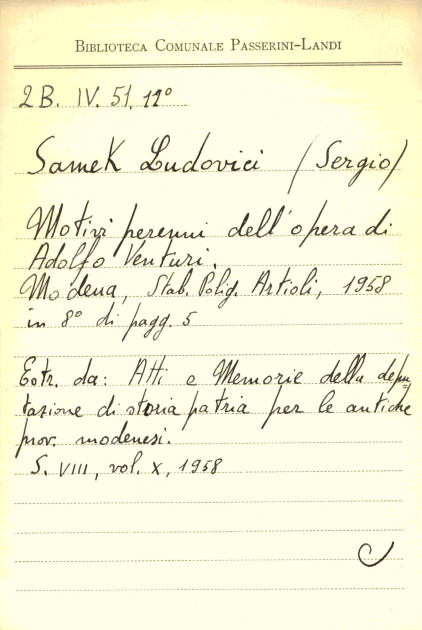 BIBLIOTECA COMUNALE PASSERINI-LANDI
2B. IV. 51, 12°
Samek Ludovici (Sergio)
Motivi perenni dell'opera di
Adolfo Venturi.
Modena, Stab. Polig. Artioli, 1958
in 8° di pagg. 5
Estr. da: Atti e Memorie della depu
tazione di storia patria per le antiche
prov. modenesi.
S. VIII, vol. X, 1958